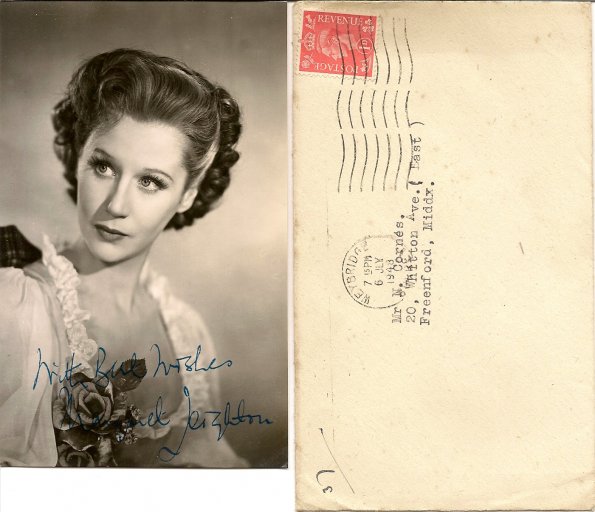 With Best Wishes
Margaret Leighton
REVENUE
1D
POSTAGE
WEYBRIDGE
7 15PM
6 JLY
1948
Mr N. Cornes.
20, Whitton Ave.( East )
Freenford, Middx.
37/